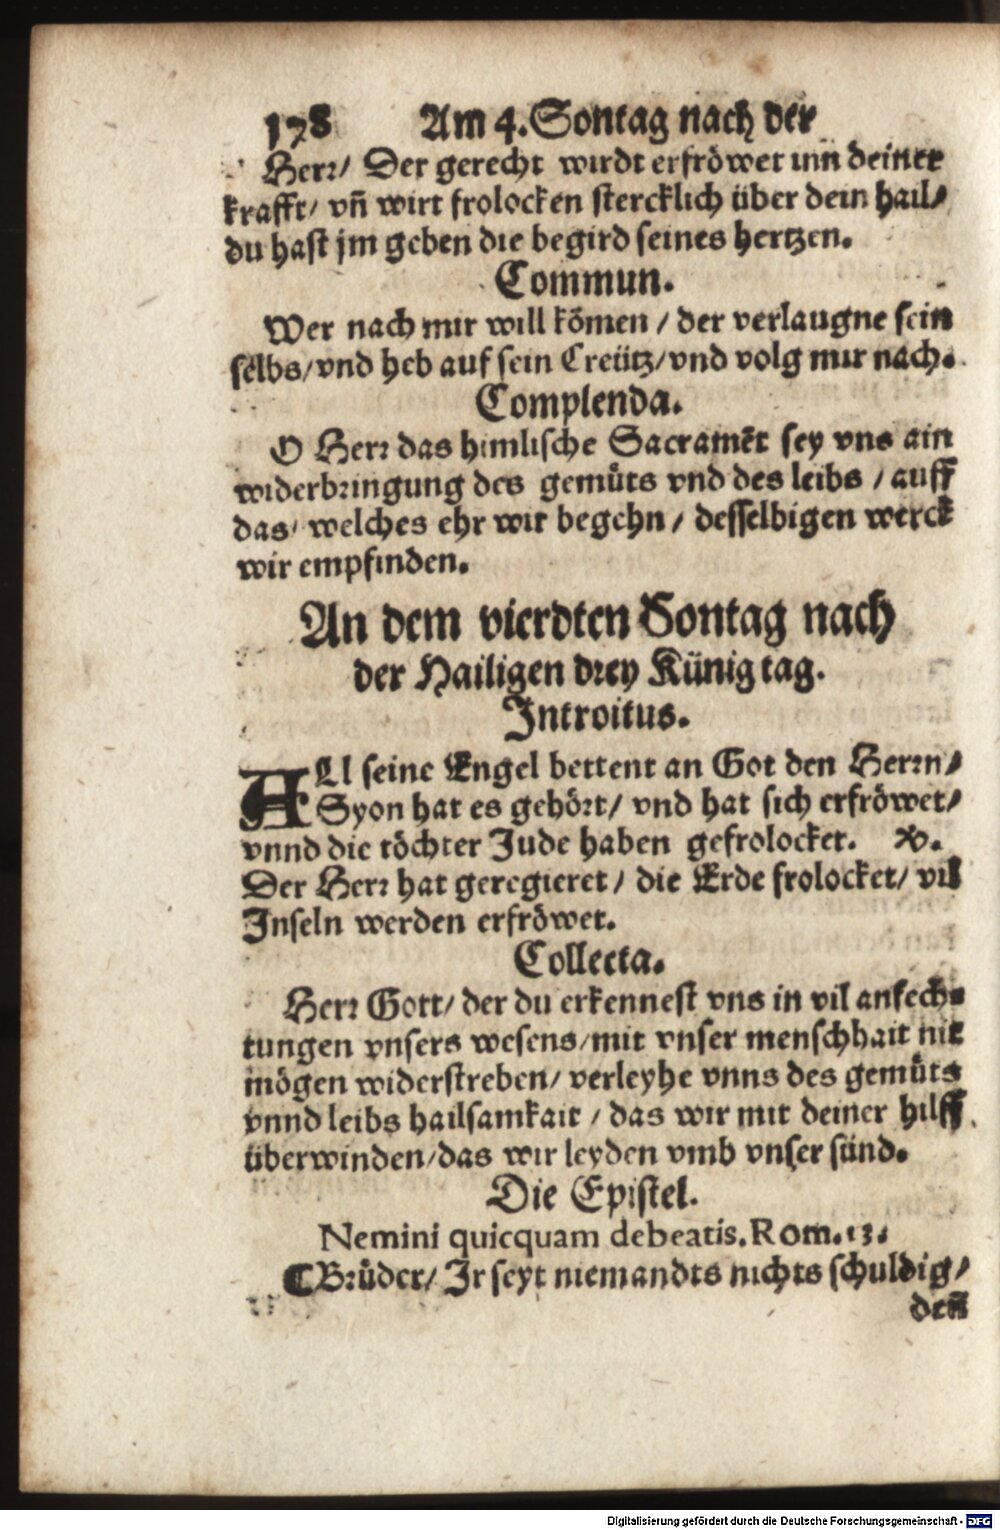 178 Am 4. Sontag nach der
Herr/ Der gerecht wirdt erfröwet inn deiner
krafft/ vñ wirt frolocken stercklich über dein hail/
du hast jm geben die begird seines hertzen.
Commun.
Wer nach mir will kōmen / der verlaugne sein
selbs/ vnd heb auf sein Creütz/ vnd volg mir nach.
Complenda.
O Herr das himlische Sacramēt sey vns ain
widerbringung des gemüts vnd des leibs / auff
das/ welches ehr wir begehn / desselbigen werck
wir empfinden.
An dem vierdten Sontag nach
der Hailigen drey Künig tag.
Introitus.
ALl seine Engel bettent an Got den Herrn/
Syon hat es gehört/ vnd hat sich erfröwet/
vnnd die töchter Jude haben gefrolocket. ℣.
Der Herr hat geregieret / die Erde frolocket/ vil
Inseln werden erfröwet.
Collecta.
Herr Gott/ der du erkennest vns in vil anfech⸗
tungen vnsers wesens/ mit vnser menschhait nit
mögen widerstreben/ verleyhe vnns des gemüts
vnnd leibs hailsamkait / das wir mit deiner hilff
überwinden/ das wir leyden vmb vnser sünd.
Die Epistel.
Nemini quicquam debeatis. Rom. 13.
⸿ Brüder/ Ir seyt niemandts nichts schuldig/
deñ
Digitalisierung gefördert durch die Deutsche Forschungsgemeinschaft - DFG